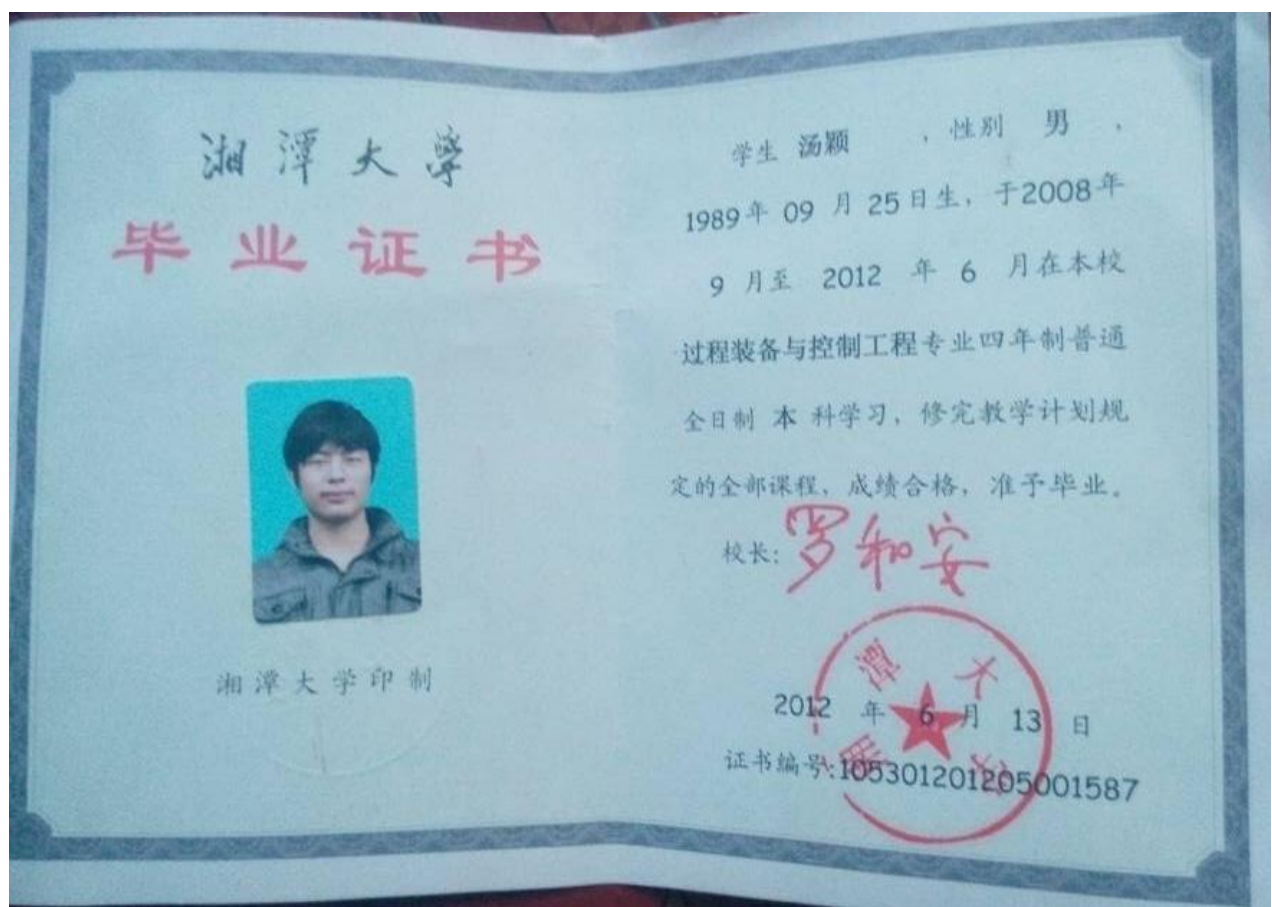 湘潭大學
毕业证书
湘潭大学印制
学生 汤颖 ，性别 男 ，
1989年 09 月 25日生，于2008年
9 月至 2012 年 6 月在本校
过程装备与控制工程专业四年制普通
全日制 本 科学习，修完教学计划规
定的全部课程，成绩合格，准予毕业。
校长：罗和安
湘潭大学
2012 年 6 月 13 日
证书编号:105301201205001587